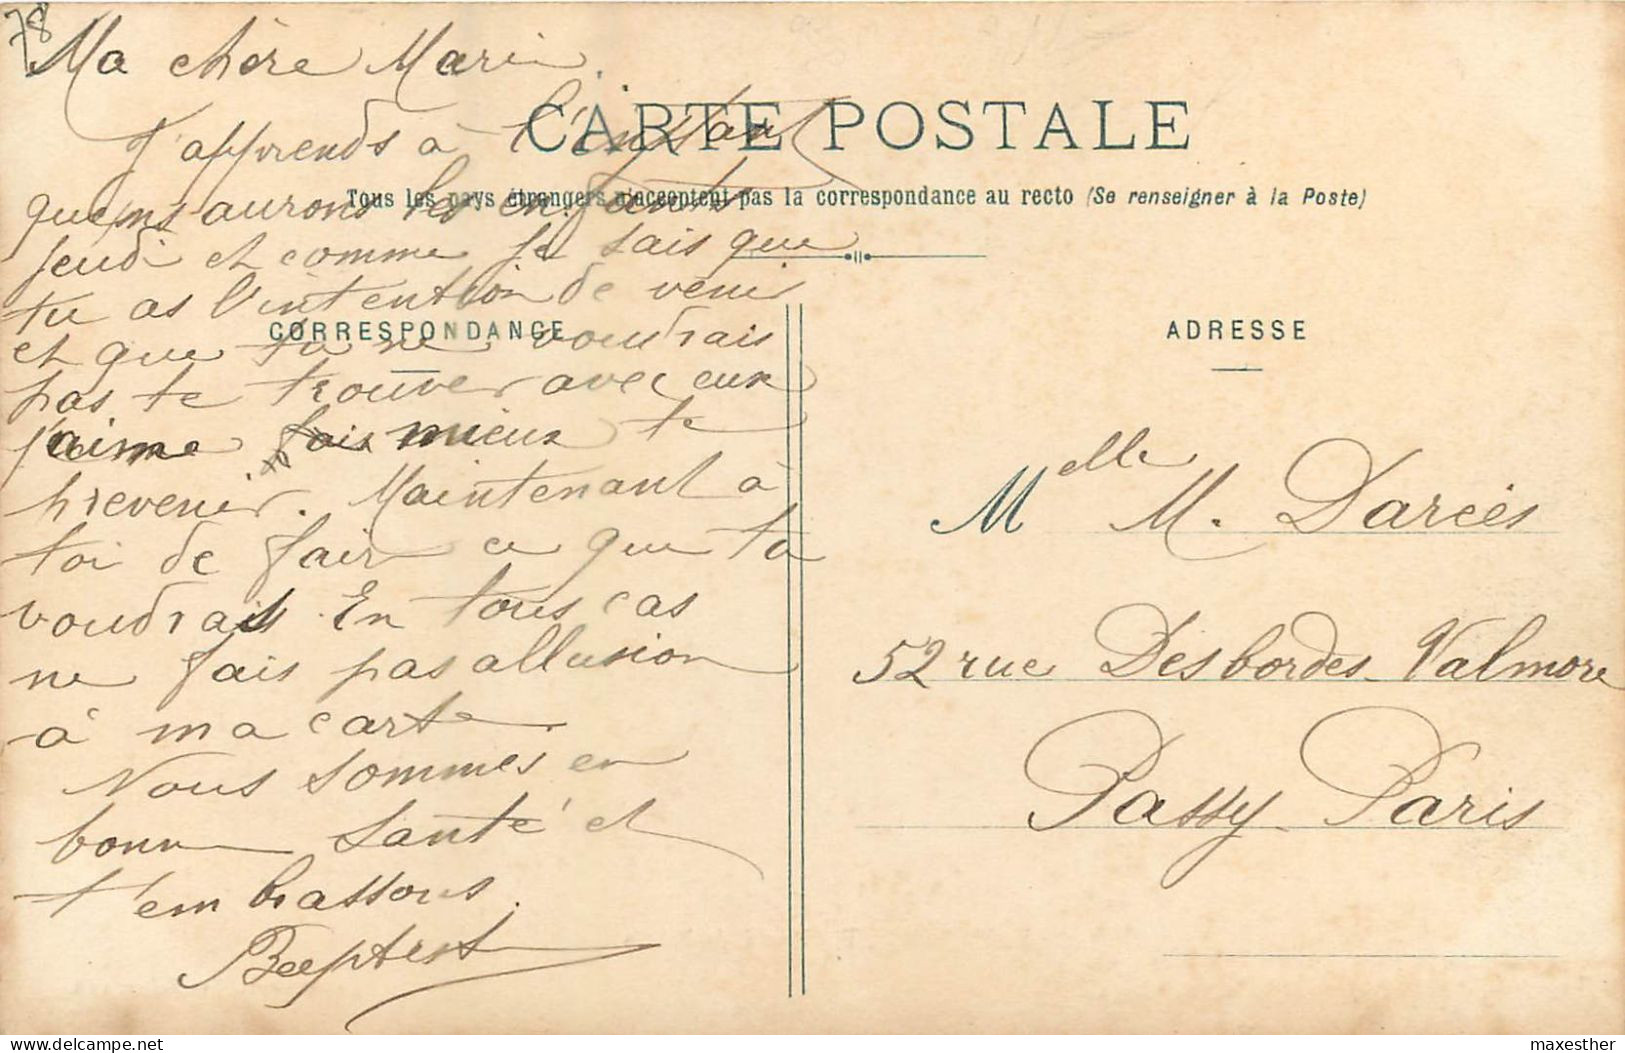 78
Ma chère Marie
CARTE POSTALE
J'apprends à l'instant
Tous les pays étrangers n'acceptent pas la correspondance au recto (Se renseigner à la Poste)
que ns aurons les enfants
jeudi et comme je sais que
tu as l'intention de venir
CORRESPONDANCE
et que tu ne voudrais
pas te trouver avec eux
j'aime fais mieux te
prevenir. Maintenant à
toi de faire ce que tu
voudrais. En tous cas
ne fais pas allusion
à ma carte
Nous sommes en
bonne santé et
t'embrassons.
Baptist
ADRESSE
Melle M. Darcés
52 rue Desbordes-Valmore
Passy-Paris
delcampe.net
maxesther